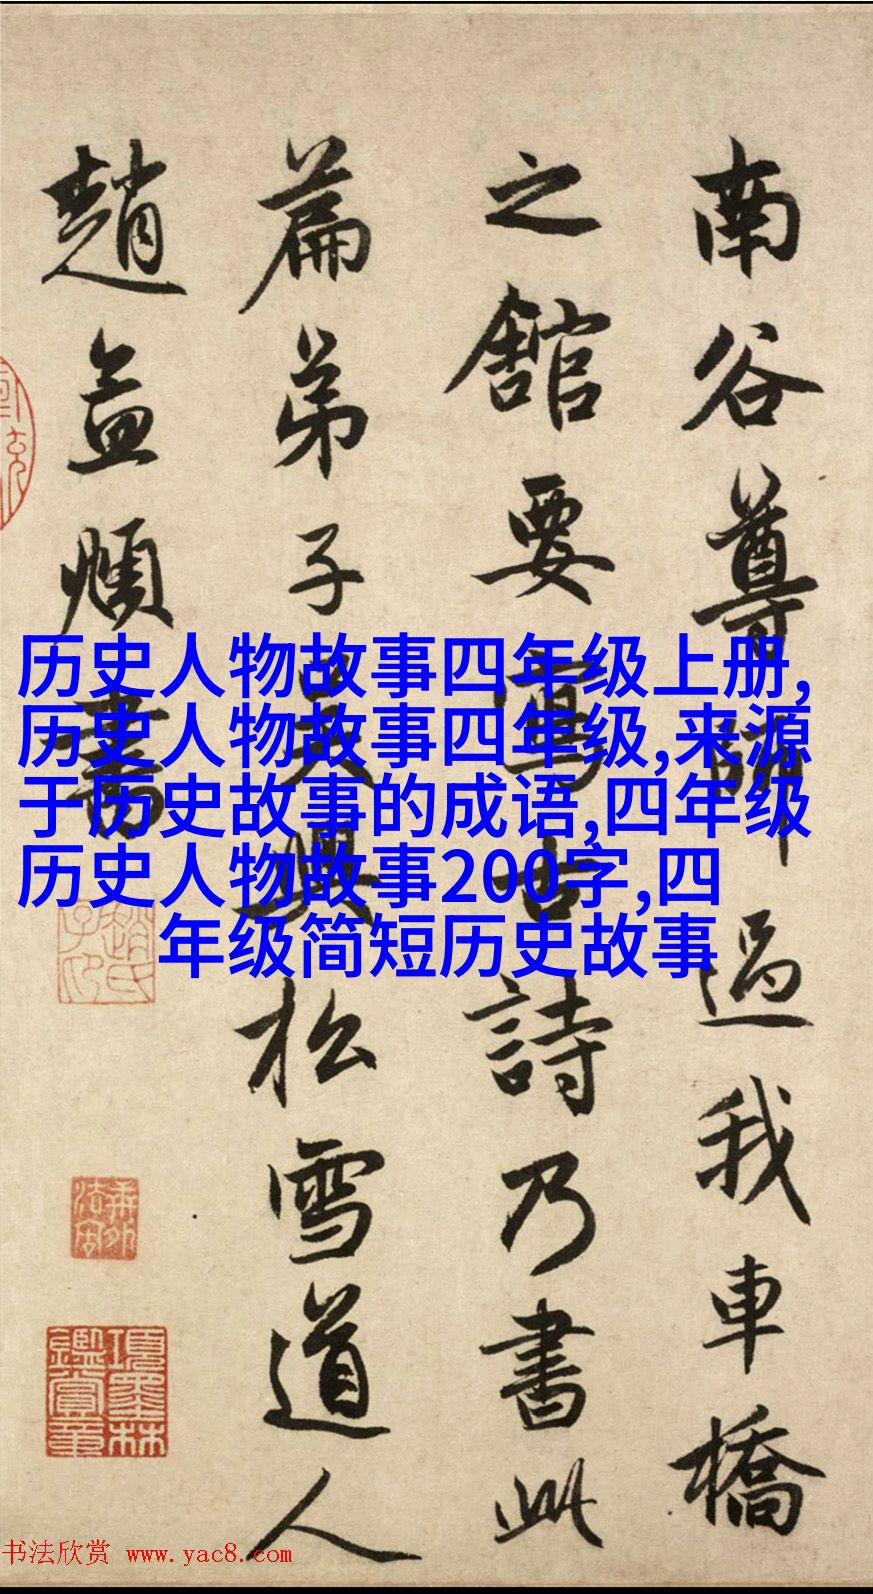 南谷尊師過我車橋
之館要寫古詩乃書此
篇弟子吳興松雪道人
趙孟頫書
历史人物故事四年级上册,
历史人物故事四年级,来源
于历史故事的成语,四年级
历史人物故事200字,四
年级简短历史故事
趙氏子昂
項墨林鑑賞章
书法欣赏 www.yac8.com